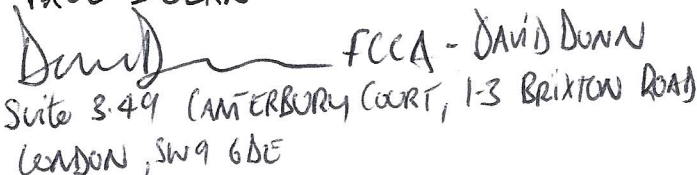 FCCA - DAVID DUNN
Suite 3.49 CANTERBURY COURT, 1-3 BRIXTON ROAD
LONDON, SW9 6DE